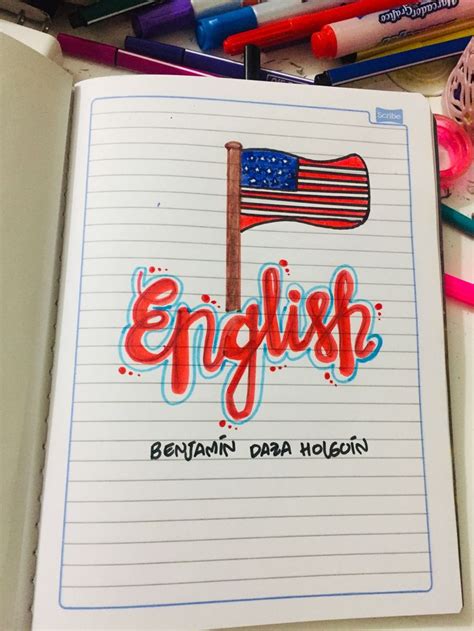 MarcadorGráfico
Scribe
English
BENJAMÍN DAZA HOLGUÍN